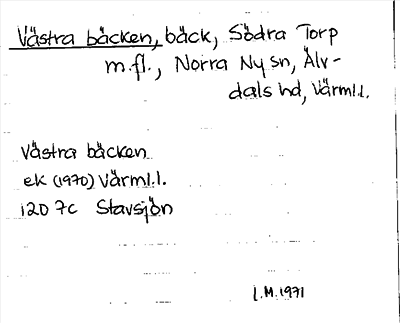 Västra bäcken, bäck, Södra Torp
m.fl., Norra Ny sn, Älv-
dals hd, Värml.l.
Västra bäcken
ek (1970) Värml.l.
12D 7c Stavsjön
I.M. 1971